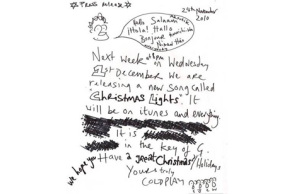 ☆Press Release☆
24th November
2010
Hello Salaam
¡Hola! Hallo
Bonjour
Next week at 8pm on Wednesday
1st December we are
releasing a new song called
Christmas Lights. It
will be on itunes and everything
It is
in the key of G.
We hope you Have a great Christmas/Holidays
Yours truly
COLDPLAY